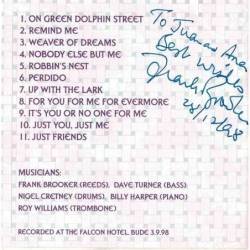 1. ON GREEN DOLPHIN STREET
2. REMIND ME
3. WEAVER OF DREAMS
4. NOBODY ELSE BUT ME
5. ROBBIN'S NEST
6. PERDIDO
7. UP WITH THE LARK
8. FOR YOU FOR ME FOR EVERMORE
9. IT'S YOU OR NO ONE FOR ME
10. JUST YOU, JUST ME
11. JUST FRIENDS
To
Best Wishes
Frank Brooker
28/12/98
MUSICIANS:
FRANK BROOKER (REEDS), DAVE TURNER (BASS)
NIGEL CRETNEY (DRUMS), BILLY HARPER (PIANO)
ROY WILLIAMS (TROMBONE)
RECORDED AT THE FALCON HOTEL BUDE 3.9.98